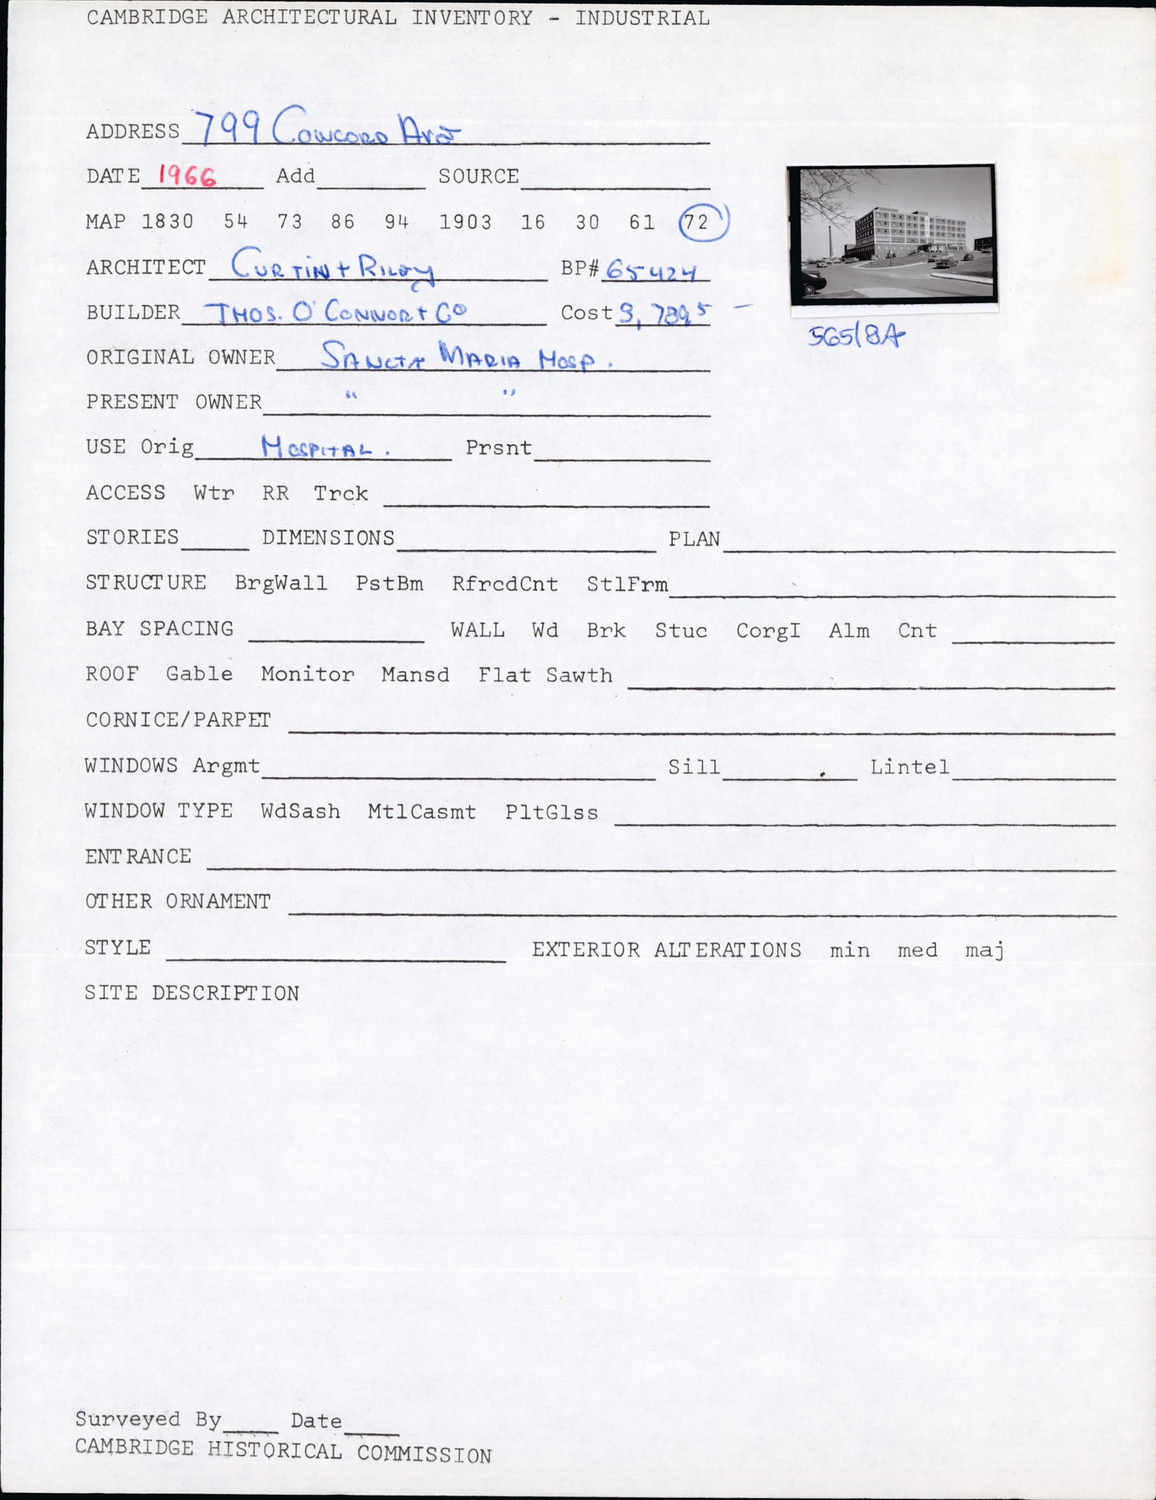 CAMBRIDGE ARCHITECTURAL INVENTORY - INDUSTRIAL
ADDRESS 799 Concord Ave
DATE 1966 Add SOURCE
MAP 1830 54 73 86 94 1903 16 30 61 72
ARCHITECT Curtin + Riley BP# 65424
BUILDER THOS. O'CONNOR + CO Cost 3,789,5 —
565/8A
ORIGINAL OWNER SANCTA MARIA HOSP.
PRESENT OWNER " "
USE Orig HOSPITAL. Prsnt
ACCESS Wtr RR Trck
STORIES DIMENSIONS PLAN
STRUCTURE BrgWall PstBm RfrcdCnt StlFrm
BAY SPACING WALL Wd Brk Stuc CorgI Alm Cnt
ROOF Gable Monitor Mansd Flat Sawth
CORNICE/PARPET
WINDOWS Argmt Sill Lintel
WINDOW TYPE WdSash MtlCasmt PltGlss
ENTRANCE
OTHER ORNAMENT
STYLE EXTERIOR ALTERATIONS min med maj
SITE DESCRIPTION
Surveyed By Date
CAMBRIDGE HISTORICAL COMMISSION